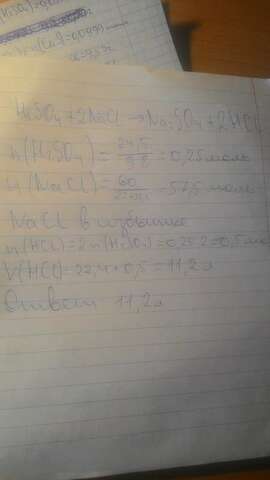 H₂SO₄+2NaCl→Na₂SO₄+2HCl
n(H₂SO₄)=24,5/98=0,25 моль
n(NaCl)=60
NaCl в избытке
n(HCl)=2n(H₂SO₄)=0,25·2=0,5 моль
V(HCl)=22,4·0,5=11,2 л
Ответ: 11,2 л